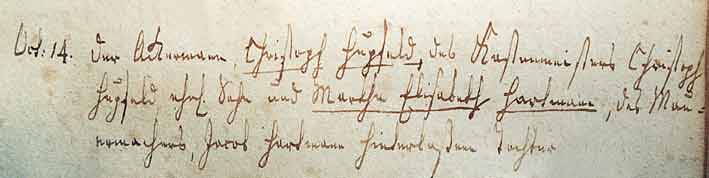 Oct: 14. der Ackermann, Christoph Hupfeld, des Kastenmeisters Christoph
Hupfeld ehel. Sohn und Martha Elisabeth Hartmann, des Mau-
ermachers, Jacob Hartmann hinterlaßene Tochter